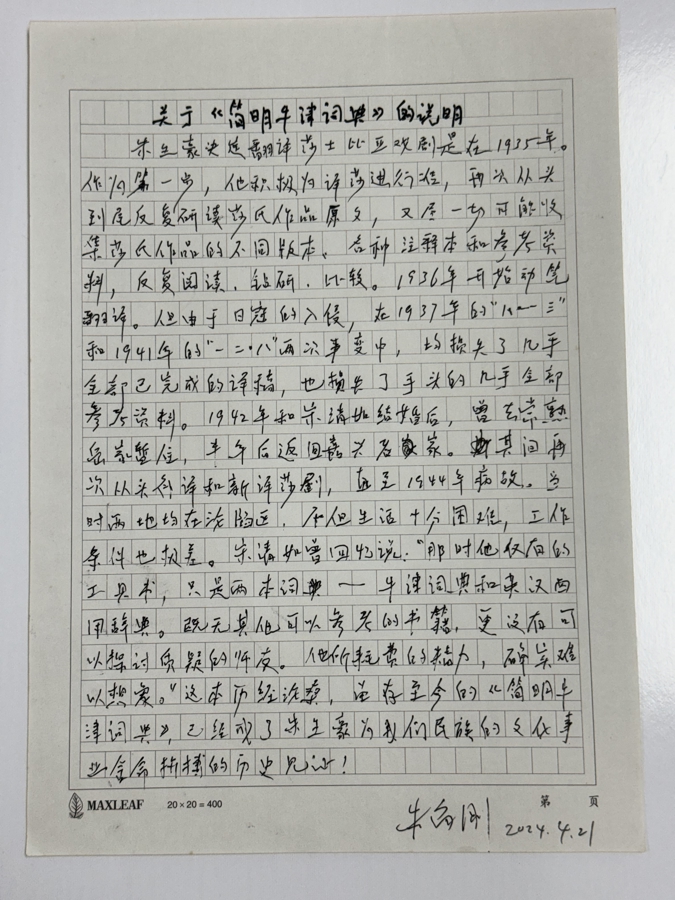 关于《简明牛津词典》的说明
朱生豪决定翻译莎士比亚戏剧是在1935年。
作为第一步，他积极为译莎进行准，再次从头
到尾反复研读莎氏作品原文，又尽一切可能收
集莎氏作品的不同版本、各种注释本和参考资
料，反复阅读、钻研、比较。1936年开始动笔
翻译。但由于日寇的入侵，在1937年的“八一三”
和1941年的“一二·八”两次事变中，均损失了几乎
全部已完成的译稿，也损失了手头的几乎全部
参考资料。1942年和宋清如结婚后，曾去常熟
岳家暂住，半年后返回嘉兴老家。其间再
次从头到译和新译莎剧，直至1944年病故。当
时两地均在沦陷区，不但生活十分困难，工作
条件也极差。宋清如曾回忆说：“那时他仅有的
工具书，只是两本词典——牛津词典和英汉四
用辞典。既无其他可以参考的书籍，更没有可
以探讨质疑的师友。他所耗费的精力，确实难
以想象。”这本历经沧桑，留存至今的《简明牛
津词典》，已经成了朱生豪为我们民族的文化事
业舍命拼搏的历史见证！
MAXLEAF 20×20=400 第 页
朱尚刚
2024.4.21